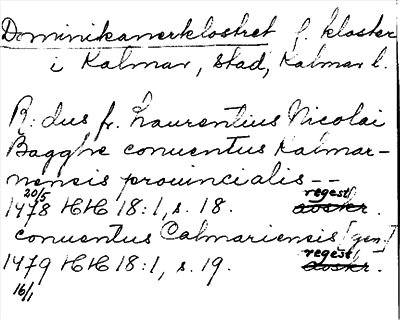 Dominikanerklostret f. kloster
i Kalmar, stad, Kalmar l.
R:dus fr. Laurentius Nicolai
Bagghe conuentus Kalmar-
nensis prouincialis --
20/5 regest
1478 HH 18:1, s. 18. avskr.
conuentus Calmariensis [gen]
regest
1479 HH 18:1, s. 19. avskr.
16/1